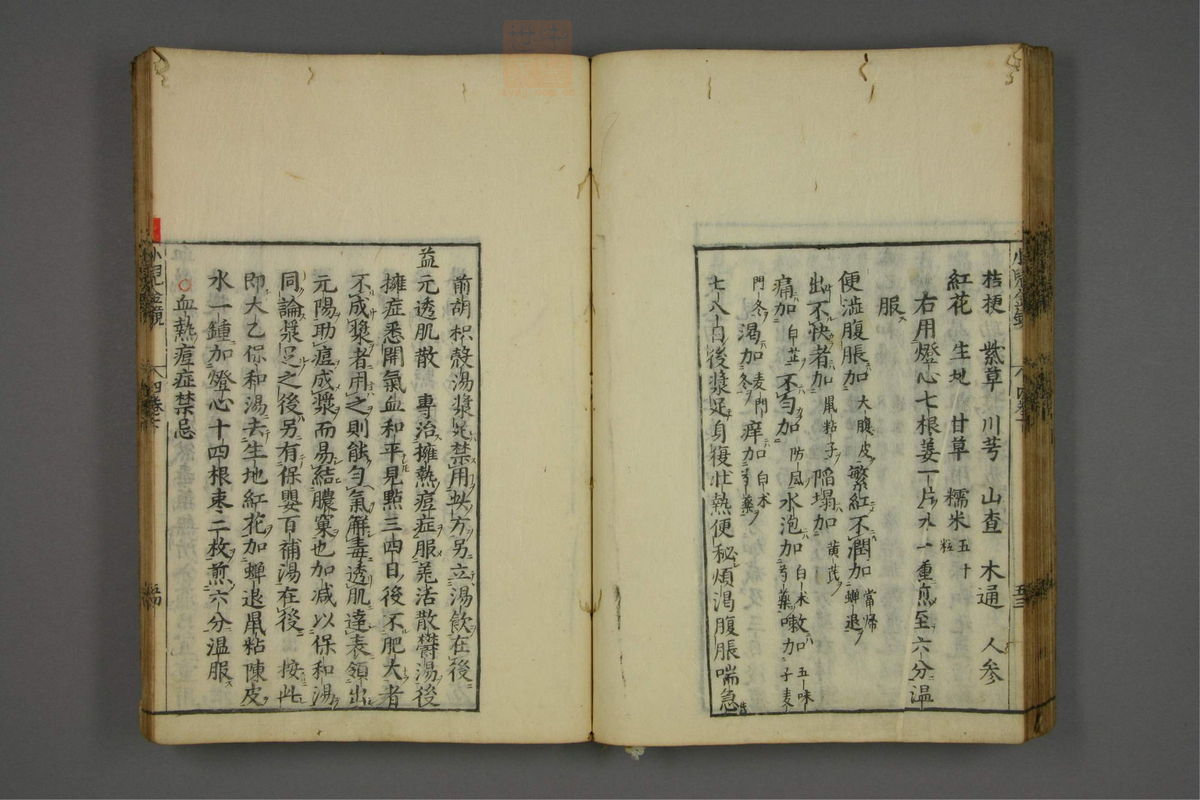 桔梗 紫草 川芎 山查 木通 人参
紅花 生地 甘草 糯米 五十粒
右用燈心七根姜一片水一鍾煎至六分温
服
便澁腹脹加大腹皮繁紅不潤加當帰蟬退
出不快者加鼠粘子陥塌加黄芪
痛加白芷不匀加防風水泡加白木芍藥嗽加五味子麦
門冬渇加麦門冬痒加白木芍藥
七八日後漿足身復壮熱便秘煩渇腹脹喘急
前胡枳殻湯漿足禁用此方另立湯飲在後
益元透肌散 專治擁熱痘症服羗活散欝湯後
擁症悉開氣血和平見點三四日後不肥大者
不成漿者用之則能匀氣解毒透肌達表領出
元陽助痘成漿而易結膿窠也加减以保和湯
同論漿足之後另有保嬰百補湯在後 按此
即大乙保和湯去生地紅花加蟬退鼠粘陳皮
水一鍾加燈心十四根枣二枚煎六分温服
○血熱痘症禁忌